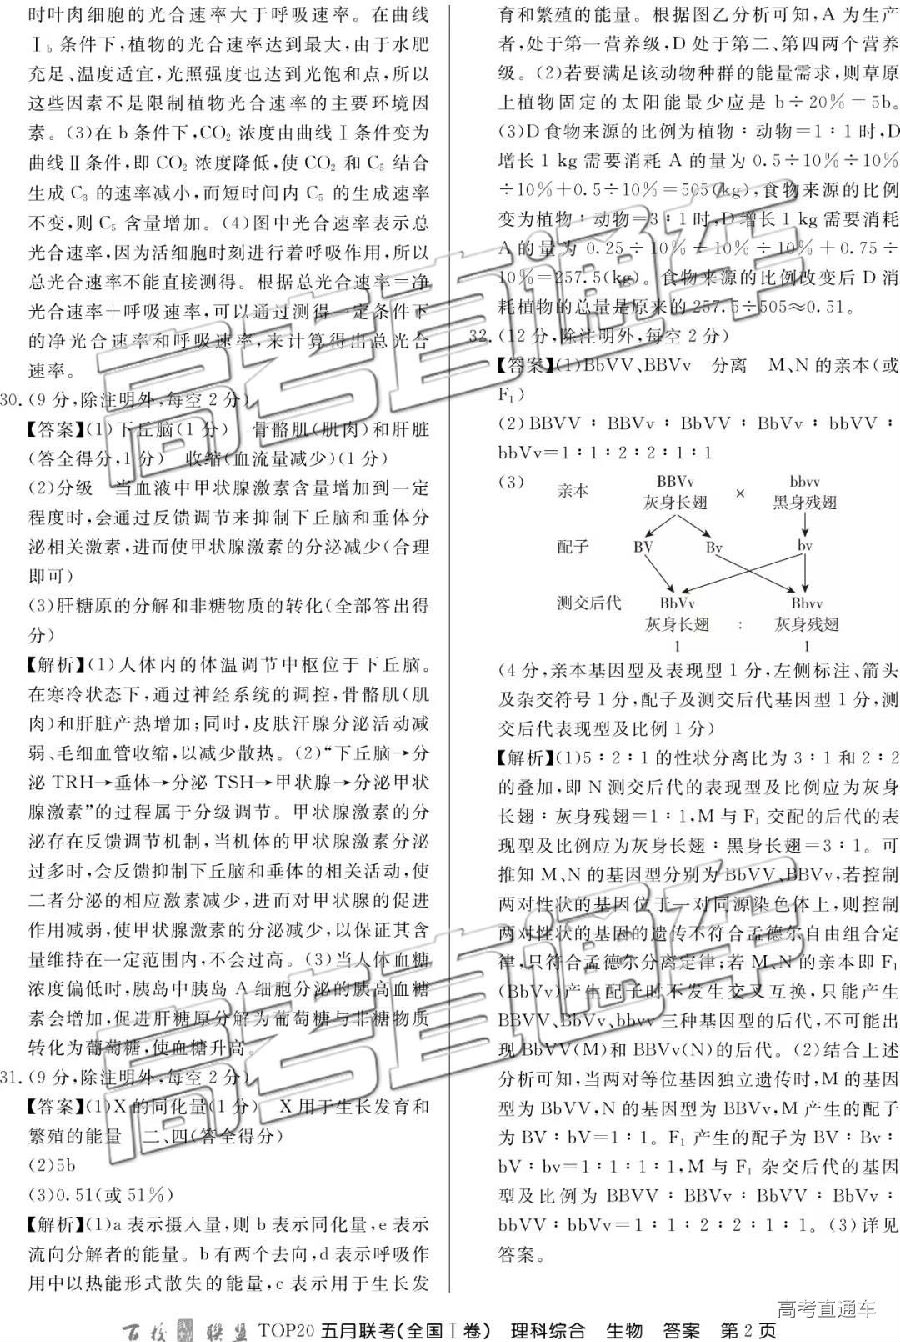 时叶肉细胞的光合速率大于呼吸速率。在曲线
Ⅰb 条件下,植物的光合速率达到最大,由于水肥
充足、温度适宜,光照强度也达到光饱和点,所以
这些因素不是限制植物光合速率的主要环境因
素。(3)在 b 条件下,CO₂ 浓度由曲线Ⅰ条件变为
曲线Ⅱ条件,即 CO₂ 浓度降低,使 CO₂ 和 C₅ 结合
生成 C₃ 的速率减小,而短时间内 C₅ 的生成速率
不变,则 C₅ 含量增加。(4)图中光合速率表示总
光合速率,因为活细胞时刻进行着呼吸作用,所以
总光合速率不能直接测得。根据总光合速率=净
光合速率+呼吸速率,可以通过测得一定条件下
的净光合速率和呼吸速率,来计算得出总光合
速率。
30.(9 分,除注明外,每空 2 分)
【答案】(1)下丘脑(1 分) 骨骼肌(肌肉)和肝脏
(答全得分,1 分) 收缩(血流量减少)(1 分)
(2)分级 当血液中甲状腺激素含量增加到一定
程度时,会通过反馈调节来抑制下丘脑和垂体分
泌相关激素,进而使甲状腺激素的分泌减少(合理
即可)
(3)肝糖原的分解和非糖物质的转化(全部答出得
分)
【解析】(1)人体内的体温调节中枢位于下丘脑。
在寒冷状态下,通过神经系统的调控,骨骼肌(肌
肉)和肝脏产热增加;同时,皮肤汗腺分泌活动减
弱、毛细血管收缩,以减少散热。(2)“下丘脑→分
泌 TRH→垂体→分泌 TSH→甲状腺→分泌甲状
腺激素”的过程属于分级调节。甲状腺激素的分
泌存在反馈调节机制,当机体的甲状腺激素分泌
过多时,会反馈抑制下丘脑和垂体的相关活动,使
二者分泌的相应激素减少,进而对甲状腺的促进
作用减弱,使甲状腺激素的分泌减少,以保证其含
量维持在一定范围内,不会过高。(3)当人体血糖
浓度偏低时,胰岛中胰岛 A 细胞分泌的胰高血糖
素会增加,促进肝糖原分解为葡萄糖与非糖物质
转化为葡萄糖,使血糖升高。
31.(9 分,除注明外,每空 2 分)
【答案】(1)X 的同化量(1 分) X 用于生长发育和
繁殖的能量 二、四(答全得分)
(2)5b
(3)0.51(或 51%)
【解析】(1)a 表示摄入量,则 b 表示同化量,e 表示
流向分解者的能量。b 有两个去向,d 表示呼吸作
用中以热能形式散失的能量,c 表示用于生长发
育和繁殖的能量。根据图乙分析可知,A 为生产
者,处于第一营养级,D 处于第二、第四两个营养
级。(2)若要满足该动物种群的能量需求,则草原
上植物固定的太阳能最少应是 b÷20%=5b。
(3)D 食物来源的比例为植物∶动物=1∶1 时,D
增长 1 kg 需要消耗 A 的量为 0.5÷10%÷10%
÷10%+0.5÷10%=505(kg),食物来源的比例
变为植物∶动物=3∶1 时,D 增长 1 kg 需要消耗
A 的量为 0.25÷10%÷10%÷10%+0.75÷
10%=257.5(kg)。食物来源的比例改变后 D 消
耗植物的总量是原来的 257.5÷505≈0.51。
32.(12 分,除注明外,每空 2 分)
【答案】(1)BbVV、BBVv 分离 M、N 的亲本(或
F₁)
(2)BBVV∶BBVv∶BbVV∶BbVv∶bbVV∶
bbVv=1∶1∶2∶2∶1∶1
(3)
亲本 BBVv × bbvv
灰身长翅 黑身残翅
配子 BV Bv bv
测交后代 BbVv Bbvv
灰身长翅 ∶ 灰身残翅
1 1
(4 分,亲本基因型及表现型 1 分,左侧标注、箭头
及杂交符号 1 分,配子及测交后代基因型 1 分,测
交后代表现型及比例 1 分)
【解析】(1)5∶2∶1 的性状分离比为 3∶1 和 2∶2
的叠加,即 N 测交后代的表现型及比例应为灰身
长翅∶灰身残翅=1∶1,M 与 F₁ 交配的后代的表
现型及比例应为灰身长翅∶黑身长翅=3∶1。可
推知 M、N 的基因型分别为 BbVV、BBVv,若控制
两对性状的基因位于一对同源染色体上,则控制
两对性状的基因的遗传不符合孟德尔自由组合定
律,只符合孟德尔分离定律;若 M、N 的亲本即 F₁
(BbVv)产生配子时不发生交叉互换,只能产生
BBVV、BbVv、bbvv 三种基因型的后代,不可能出
现 BbVV(M)和 BBVv(N)的后代。(2)结合上述
分析可知,当两对等位基因独立遗传时,M 的基因
型为 BbVV,N 的基因型为 BBVv,M 产生的配子
为 BV∶bV=1∶1。F₁ 产生的配子为 BV∶Bv∶
bV∶bv=1∶1∶1∶1,M 与 F₁ 杂交后代的基因
型及比例为 BBVV∶BBVv∶BbVV∶BbVv∶
bbVV∶bbVv=1∶1∶2∶2∶1∶1。(3)详见
答案。
高考直通车
高考直通车
高考直通车
百校联盟 TOP20 五月联考(全国Ⅰ卷) 理科综合 生物 答案 第 2 页